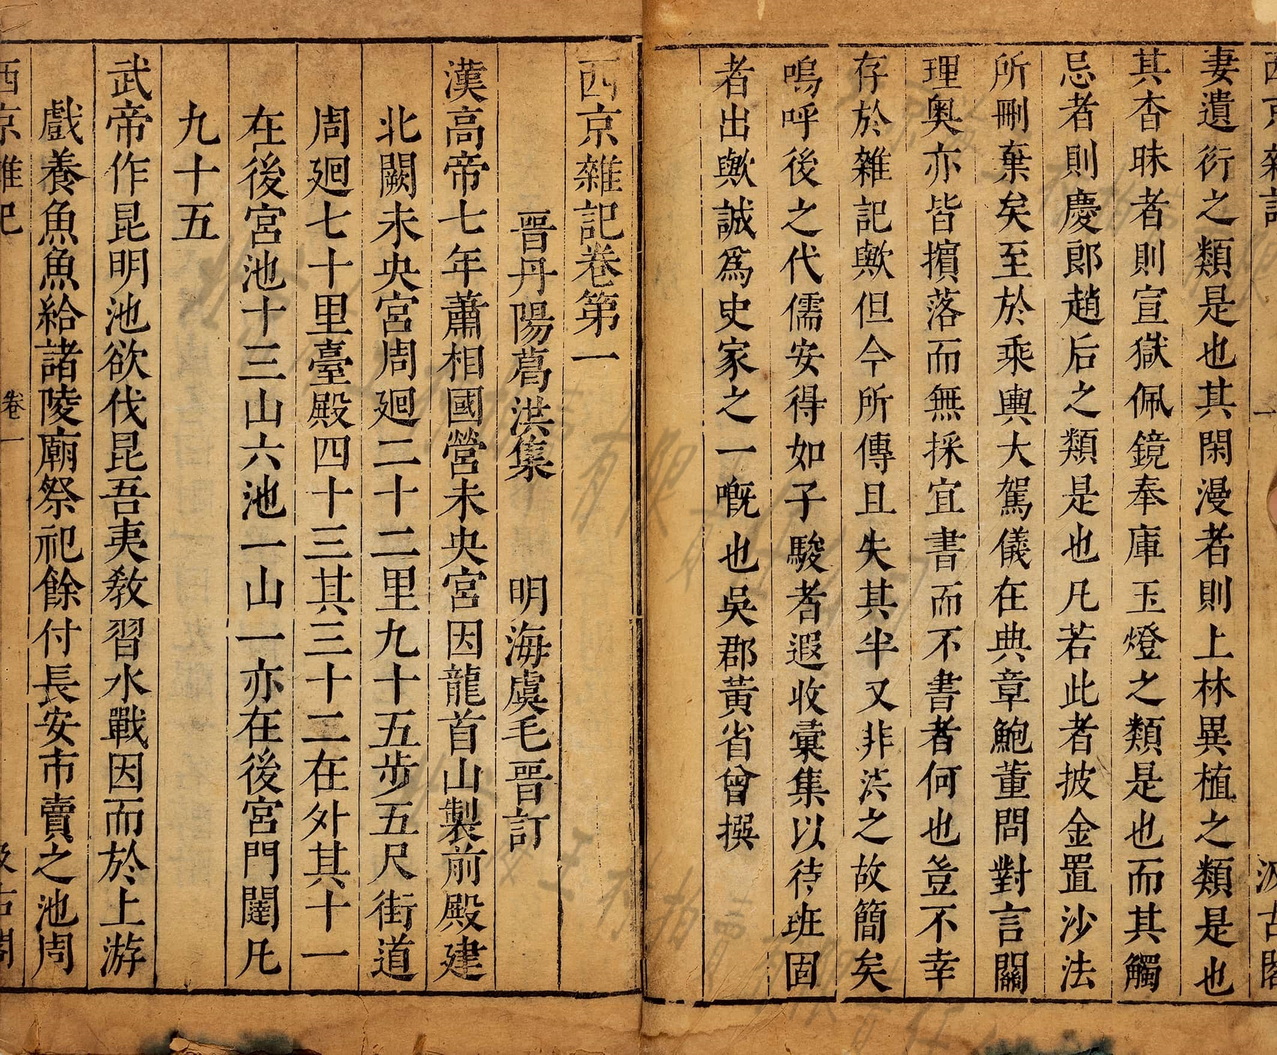 西京雜記
汲古閣
妻遺衍之類是也其閑漫者則上林異植之類是也
其杳昧者則宣獄佩鏡奉庫玉燈之類是也而其觸
忌者則慶郎趙后之類是也凡若此者披金置沙法
所刪棄矣至於乘輿大駕儀在典章鮑董問對言關
理奥亦皆擯落而無採宜書而不書者何也豈不幸
存於雜記歟但今所傳且失其半又非洪之故簡矣
嗚呼後之代儒安得如子駿者遐收彙集以待班固
者出歟誠爲史家之一嘅也吳郡黃省曾撰
西京雜記卷第一
晉丹陽葛洪集 明海虞毛晉訂
漢高帝七年蕭相國營未央宮因龍首山製前殿建
北闕未央宮周廻二十二里九十五步五尺街道
周廻七十里臺殿四十三其三十二在外其十一
在後宮池十三山六池一山一亦在後宮門闥凡
九十五
武帝作昆明池欲伐昆吾夷教習水戰因而於上游
戲養魚魚給諸陵廟祭祀餘付長安市賣之池周
西京雜記
卷一
汲古閣